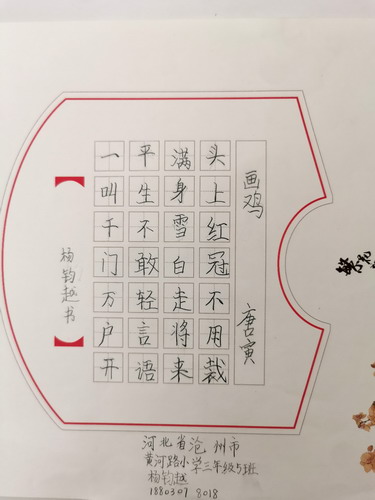 画鸡 唐寅
头上红冠不用裁
满身雪白走将来
平生不敢轻言语
一叫千门万户开
杨钧越书
河北省沧州市
黄河路小学三年级5班
杨钧越
1880307 8018